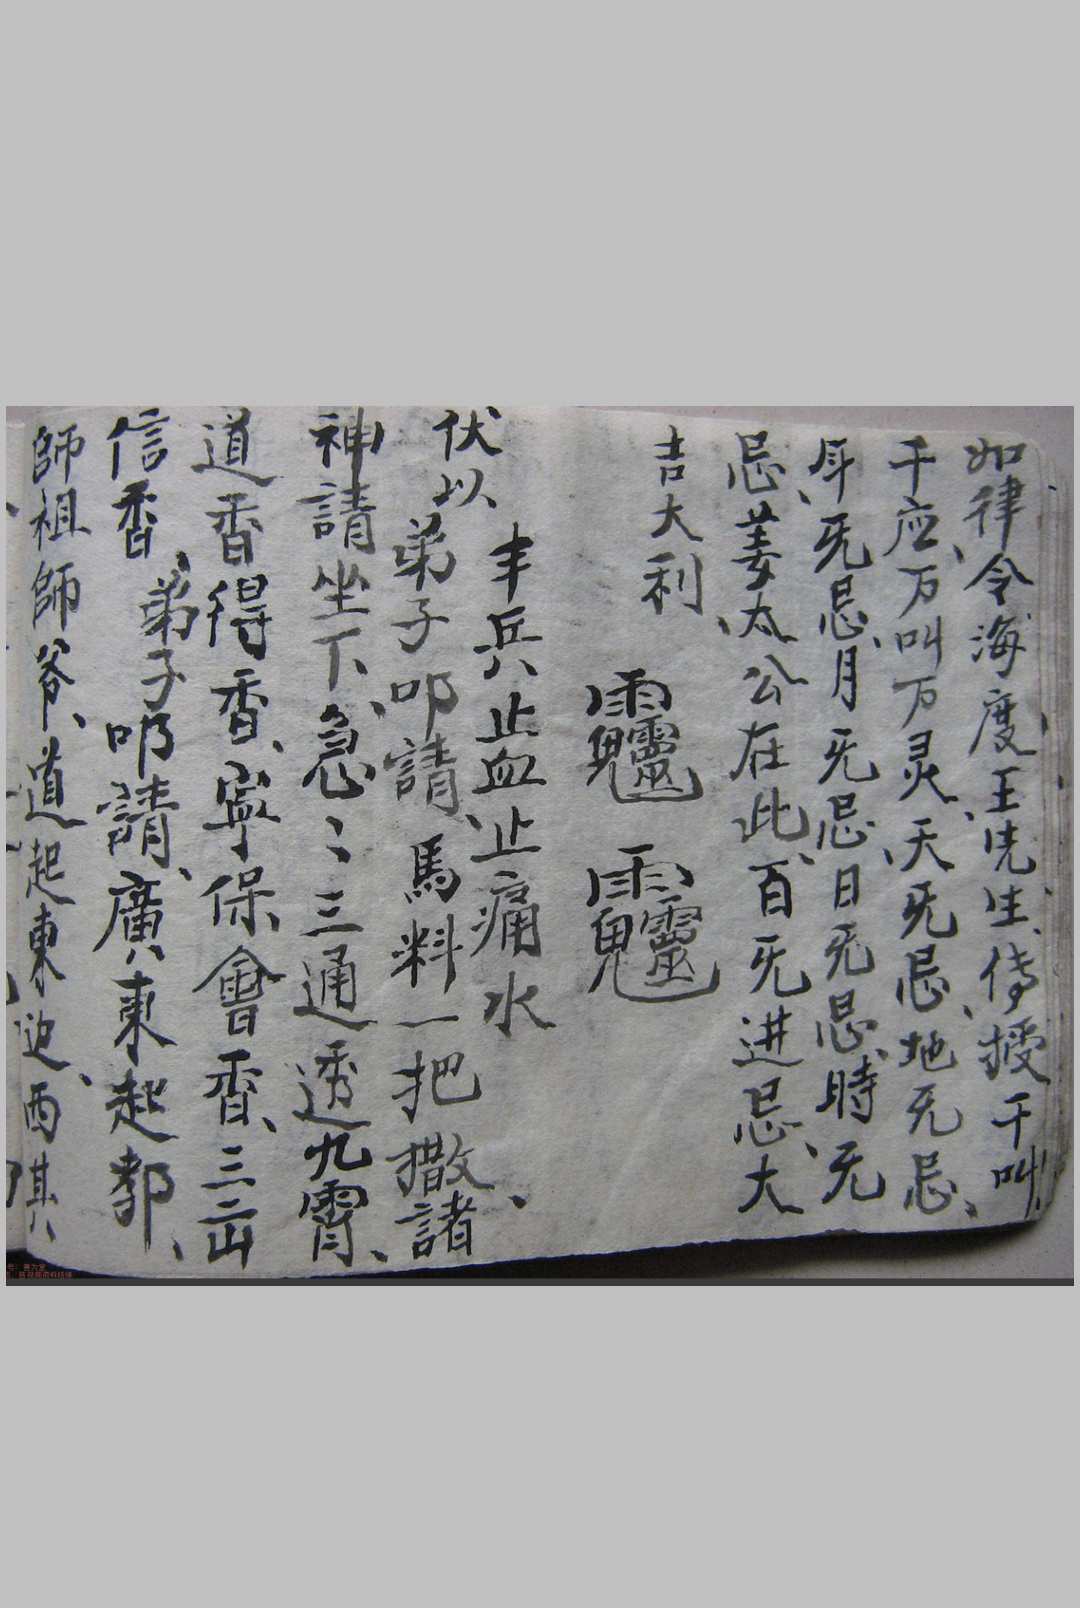 如律令海度王先生、傳授千叫
千应、万叫万灵、天旡忌、地旡忌、
年旡忌、月旡忌日旡忌、時旡
忌、姜太公在此、百旡进忌、大
吉大利
丰兵止血止痛水
伏以、弟子叩請、馬料一把撒諸
神請坐下、急〻三通透九霄、
道香得香、寧保會香、三山
信香、弟子叩請、廣東起
師祖師爷、道起東边、西其